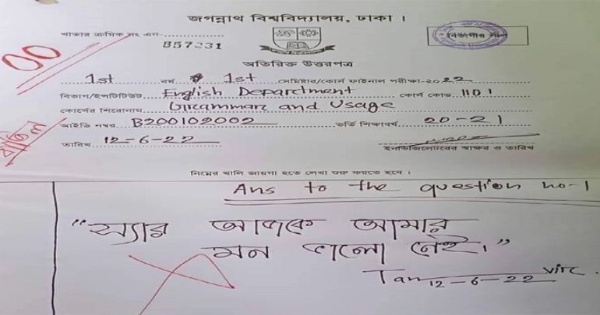 জগন্নাথ বিশ্ববিদ্যালয়, ঢাকা ।
খাতার ক্রমিক নং এন- 857231
00
অতিরিক্ত উত্তরপত্র
1st বর্ষ 1st সেমিস্টার/কোর্স ফাইনাল পরীক্ষা-২০22
বিভাগ/ইনস্টিটিউট English Department কোর্স কোড 1101
কোর্সের শিরোনাম Grammar and Usage
আইডি নম্বর B200102002 ভর্তি শিক্ষাবর্ষ 20-21
বাতিল
তারিখ 12-6-22 ইনভিজিলেটরের স্বাক্ষর ও তারিখ
নিম্নের খালি জায়গা হতে লেখা শুরু করতে হবে ।
Ans to the question no-1
"স্যার আজকে আমার
মন ভালো নেই।"
12-6-22